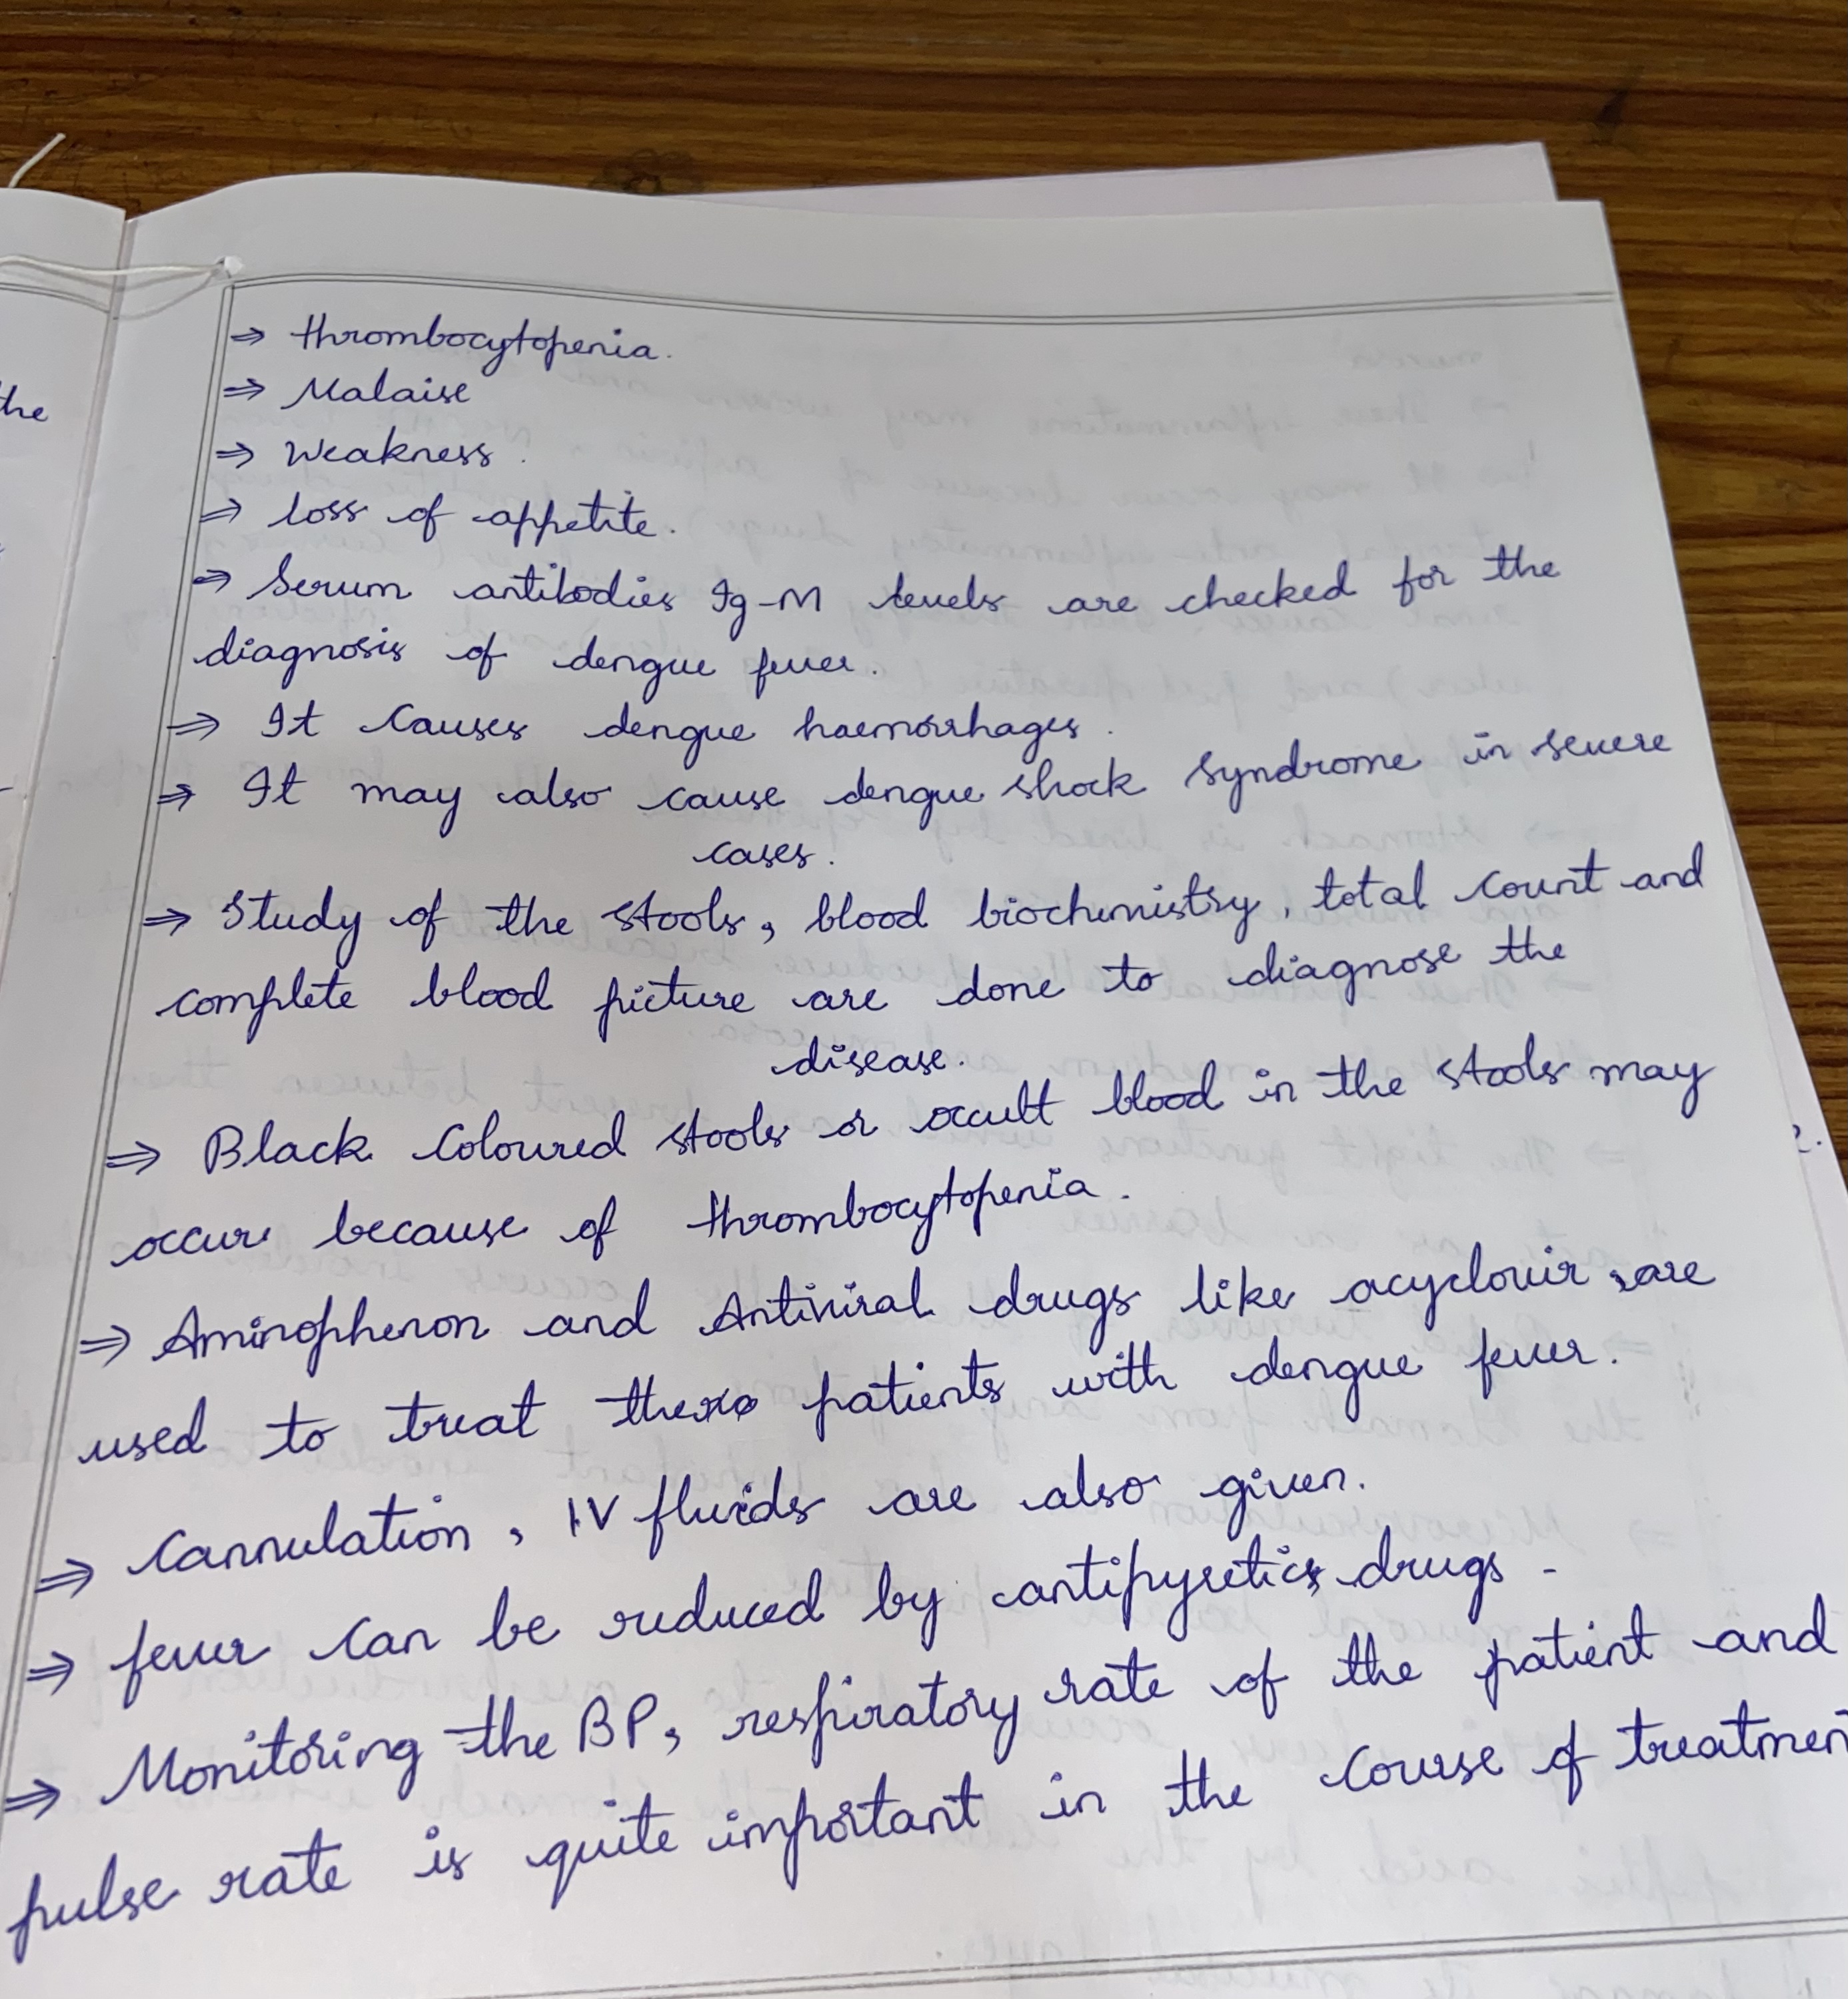 the
⇒ thrombocytopenia.
⇒ Malaise
⇒ Weakness.
⇒ loss of appetite.
⇒ Serum antibodies Ig-M levels are checked for the
diagnosis of dengue fever.
⇒ It Causes dengue haemorrhages.
⇒ It may also cause dengue shock syndrome in severe
cases.
⇒ Study of the stools, blood biochemistry, total count and
complete blood picture are done to diagnose the
disease.
⇒ Black Coloured stools or occult blood in the stools may
occur because of thrombocytopenia.
⇒ Aminophenon and Antiviral drugs like acyclovir, are
used to treat patients with dengue fever.
⇒ Cannulation, IV fluids are also given.
⇒ fever can be reduced by antipyretics drugs -
⇒ Monitoring the BP, respiratory rate of the patient and
pulse rate is quite important in the course of treatmen
2.